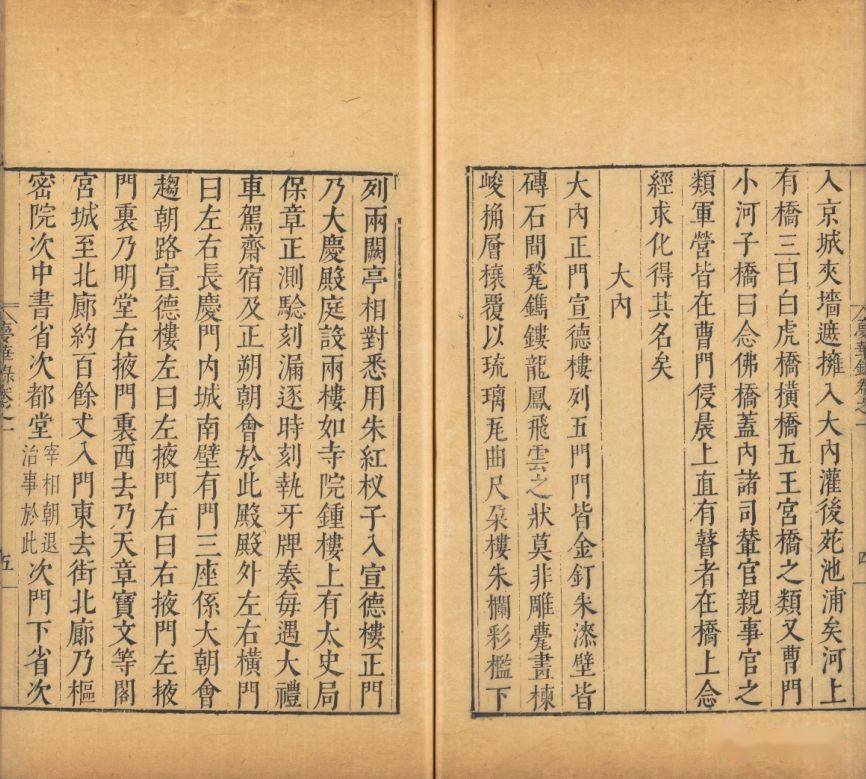 入京城夾墻遮擁入大內灌後苑池浦矣河上
有橋三曰白虎橋橫橋五王宮橋之類又曹門
小河子橋曰念佛橋蓋內諸司輦官親事官之
類軍營皆在曹門侵晨上直有瞽者在橋上念
經求化得其名矣
大內
大內正門宣德樓列五門門皆金釘朱漆壁皆
磚石間甃鐫鏤龍鳳飛雲之狀莫非雕甍畫棟
峻桷層榱覆以琉璃瓦曲尺朶樓朱欄彩檻下
列兩闕亭相對悉用朱紅杈子入宣德樓正門
乃大慶殿庭設兩樓如寺院鍾樓上有太史局
保章正測驗刻漏逐時刻執牙牌奏每遇大禮
車駕齋宿及正朔朝會於此殿殿外左右橫門
曰左右長慶門內城南壁有門三座係大朝會
趨朝路宣德樓左曰左掖門右曰右掖門左掖
門裏乃明堂右掖門裏西去乃天章寶文等閣
宮城至北廊約百餘丈入門東去街北廊乃樞
密院次中書省次都堂宰相朝退治事於此次門下省次
夢華錄卷之一
四
夢華錄卷之一
五